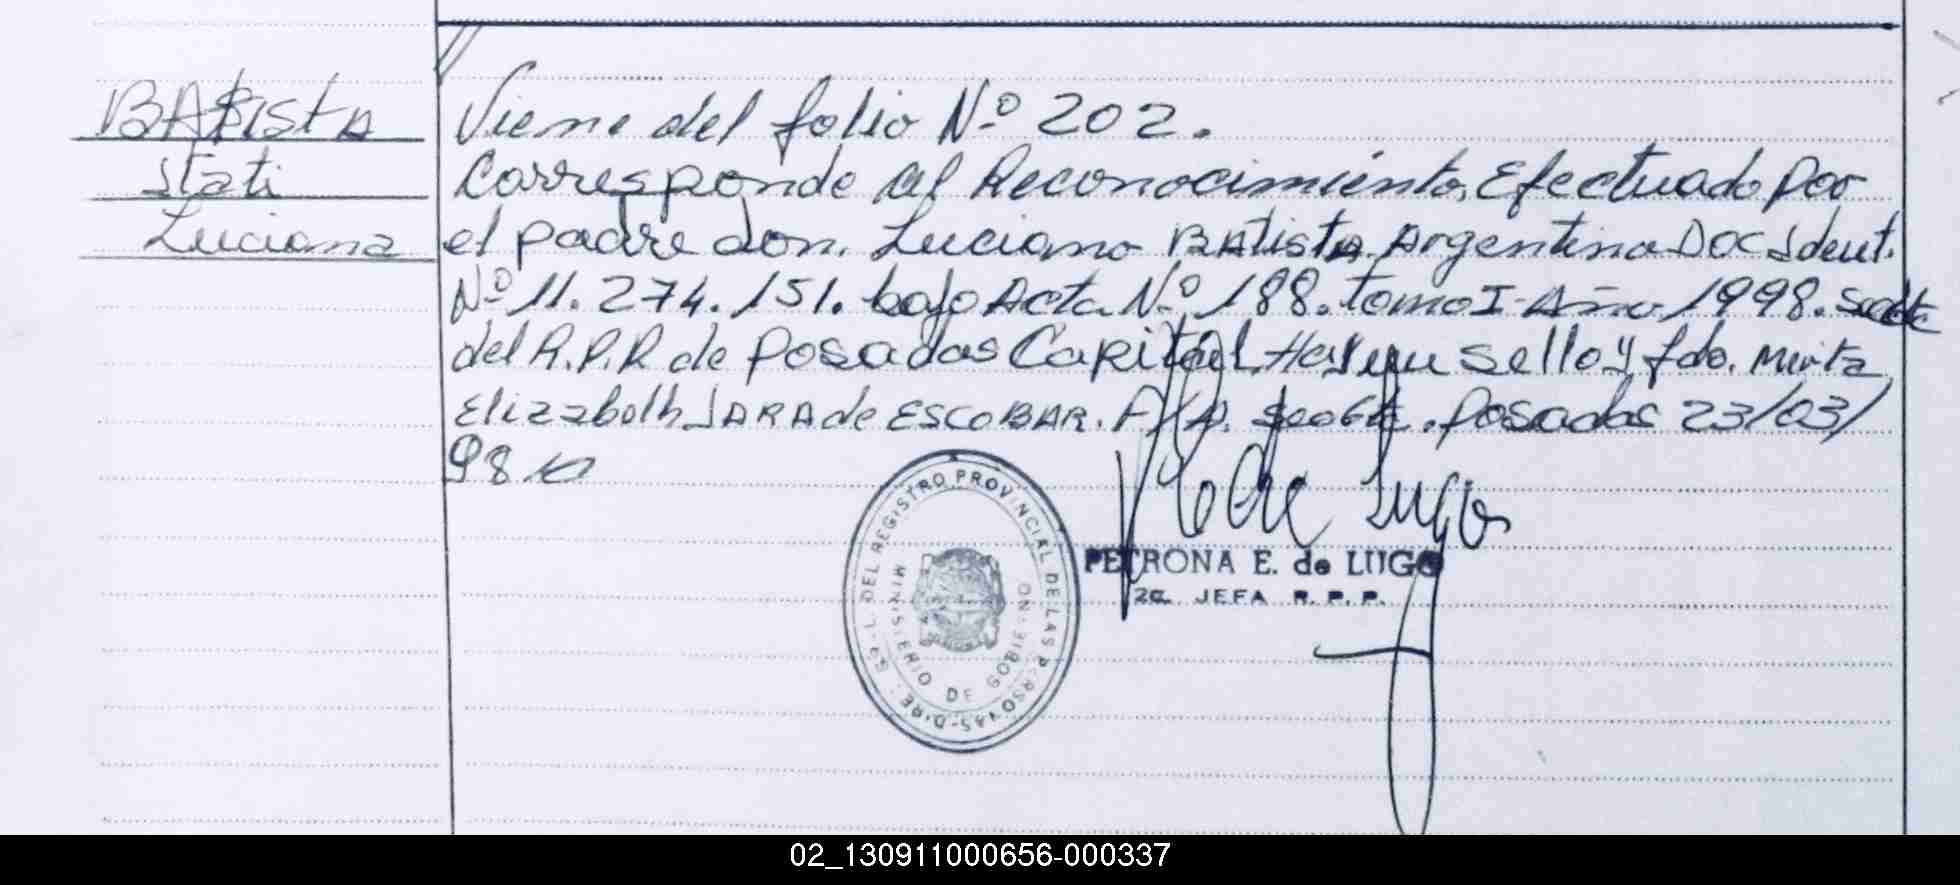 BAtista
Stati
Luciana
Viene del folio Nº 202.
Corresponde al Reconocimiento, Efectuado por
el padre don. Luciano BAtista Argentino Doc Ident.
Nº 11.274.151. bajo Acta Nº 188. tomo I Año 1998.
del R.P.P. de Posadas Capital. Hay un sello y fdo. Mirta
Elizabeth JARA de ESCOBAR. Posadas 23/03/
98
DEL REGISTRO PROVINCIAL DE LAS PERSONAS
MINISTERIO DE GOBIERNO
PETRONA E. de LUGO
2a. JEFA R. P. P.
02_130911000656-000337